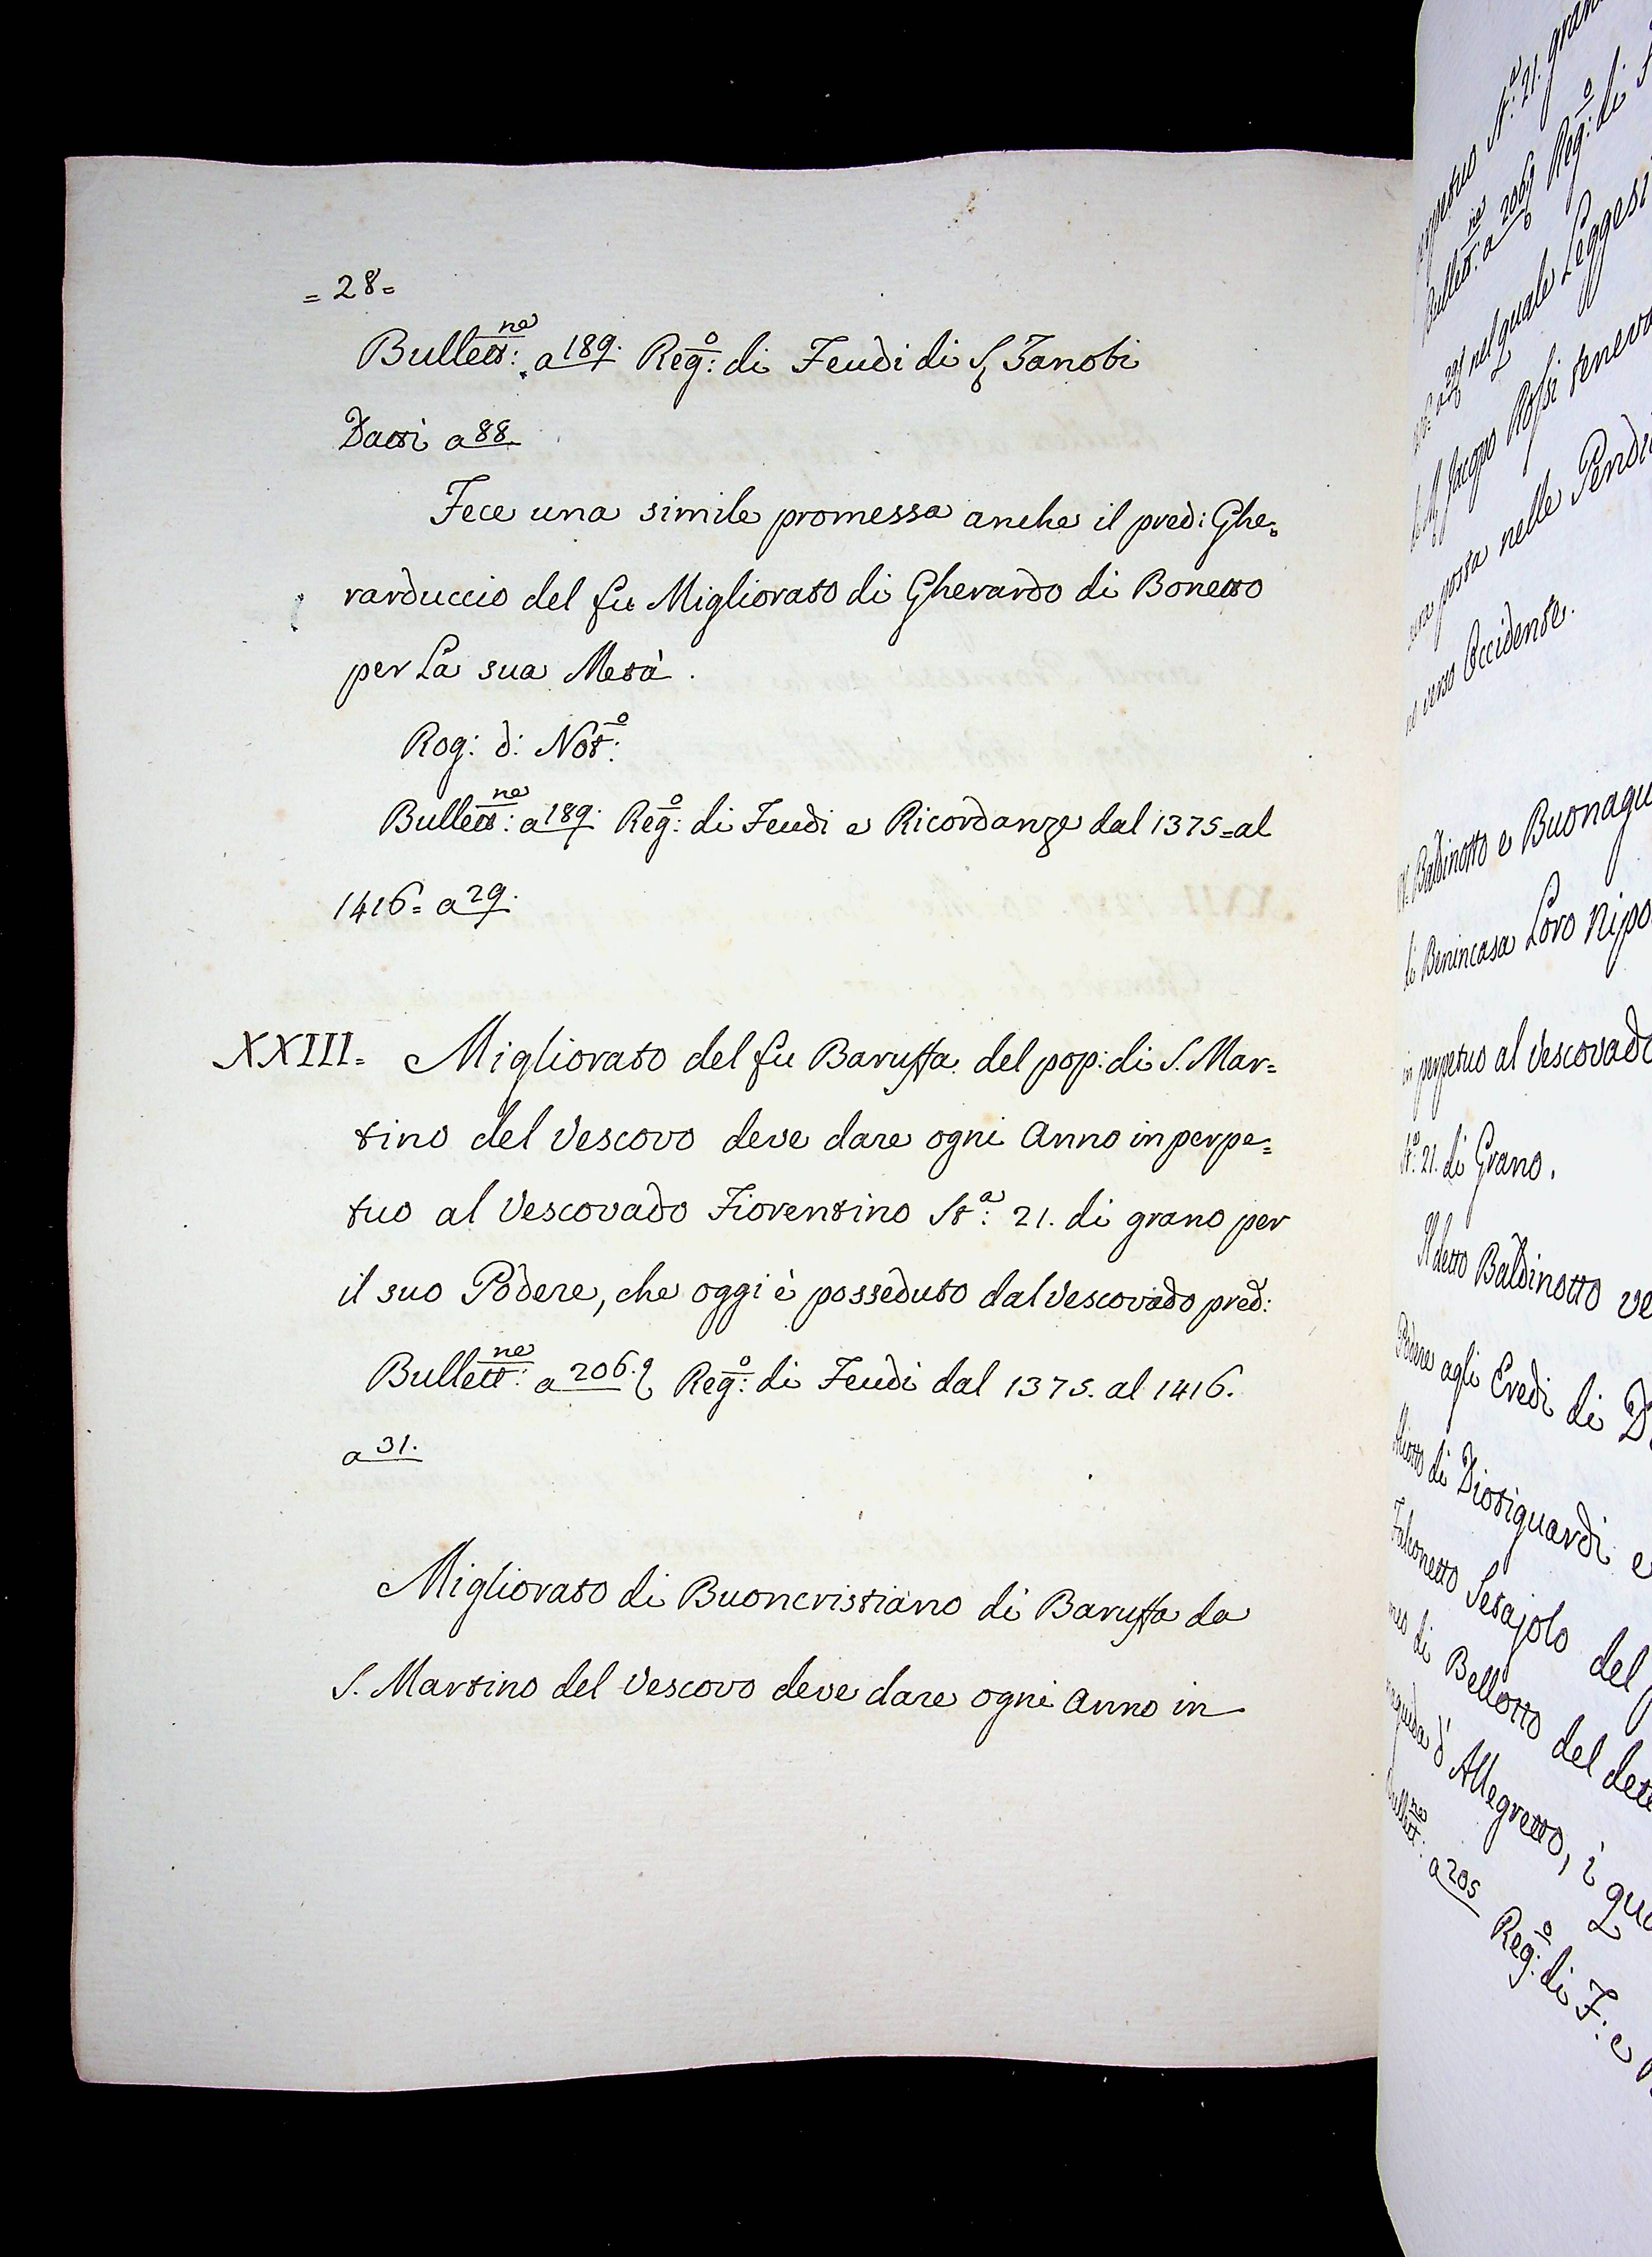 = 28 =
Bullett:ne a 189. Reg:o di Feudi di S. Zanobi
Datti a 88.
Fece una simile promessa anche il pred: Ghe=
rarduccio del fu Migliorato di Gherardo di Bonetto
per La sua Metà.
Rog: d: Not:o
Bullett:ne a 189. Reg:o di Feudi e Ricordanze dal 1375 = al
1416 = a 29.
XXIII = Migliorato del fu Baruffa del pop: di S. Mar=
tino del Vescovo deve dare ogni Anno in perpe=
tuo al Vescovado Fiorentino St:a 21. di grano per
il suo Podere, che oggi è posseduto dal Vescovado pred:
Bullett:ne a 206. Reg:o di Feudi dal 1375. al 1416.
a 31.
Migliorato di Buoncristiano di Baruffa da
S. Martino del Vescovo deve dare ogni Anno in
St:a 21. gran
Bullett:ne a 206 Reg:o di
nel quale Leggesi
Jacopo Rossi teneva
posta nelle Pendi
verso Occidente.
Baldinotto e Buonagu
di Benincasa Loro Nipo
in perpetuo al Vescovado
St:a 21. di Grano.
Il detto Baldinotto ve
Podere agli Eredi di D
di Diotiguardi e
Falconetto Setajolo del
di Bellotto del dett
d'Allegretto, i qu
Bullett:ne a 205 Reg:o di F: e